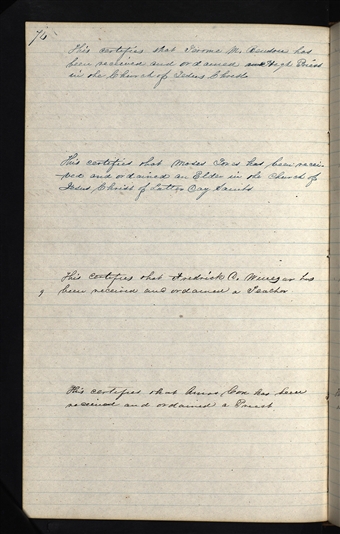 76
This certifies that Jerome M. Benson has
been received and ordained an High Priest
in the Church of Jesus Christ
This certifies that Moses has been recei-
ved and ordained an Elder in the Church of
Jesus Christ of Latter Day Saints
This certifies that Fredrick C. has
been received and ordained a Teacher
This certifies that Amos Cox has been
received and ordained a Priest